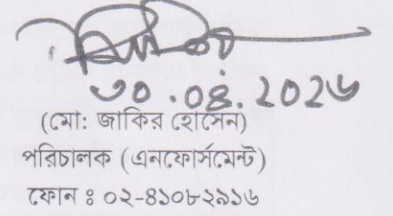 ৩০.০৪.২০২৬
(মো: জাকির হোসেন)
পরিচালক (এনফোর্সমেন্ট)
ফোন ঃ ০২-৪১০৮২৯১৬